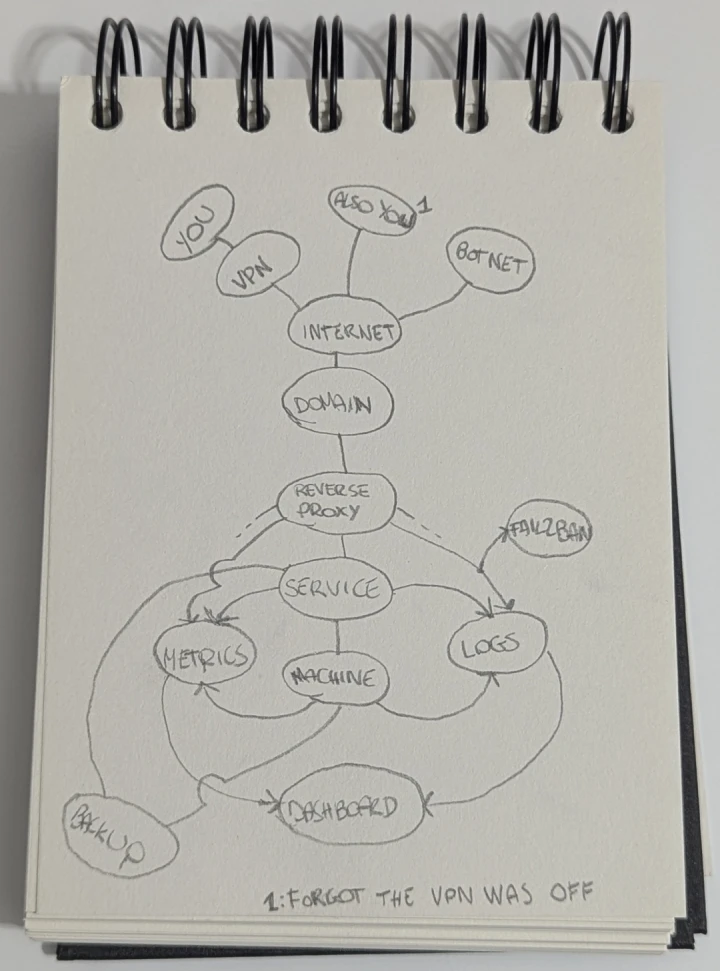 YOU
VPN
ALSO YOU1
BOTNET
INTERNET
DOMAIN
REVERSE
PROXY
FAIL2BAN
SERVICE
METRICS
LOGS
MACHINE
BACKUP
DASHBOARD
1:FORGOT THE VPN WAS OFF